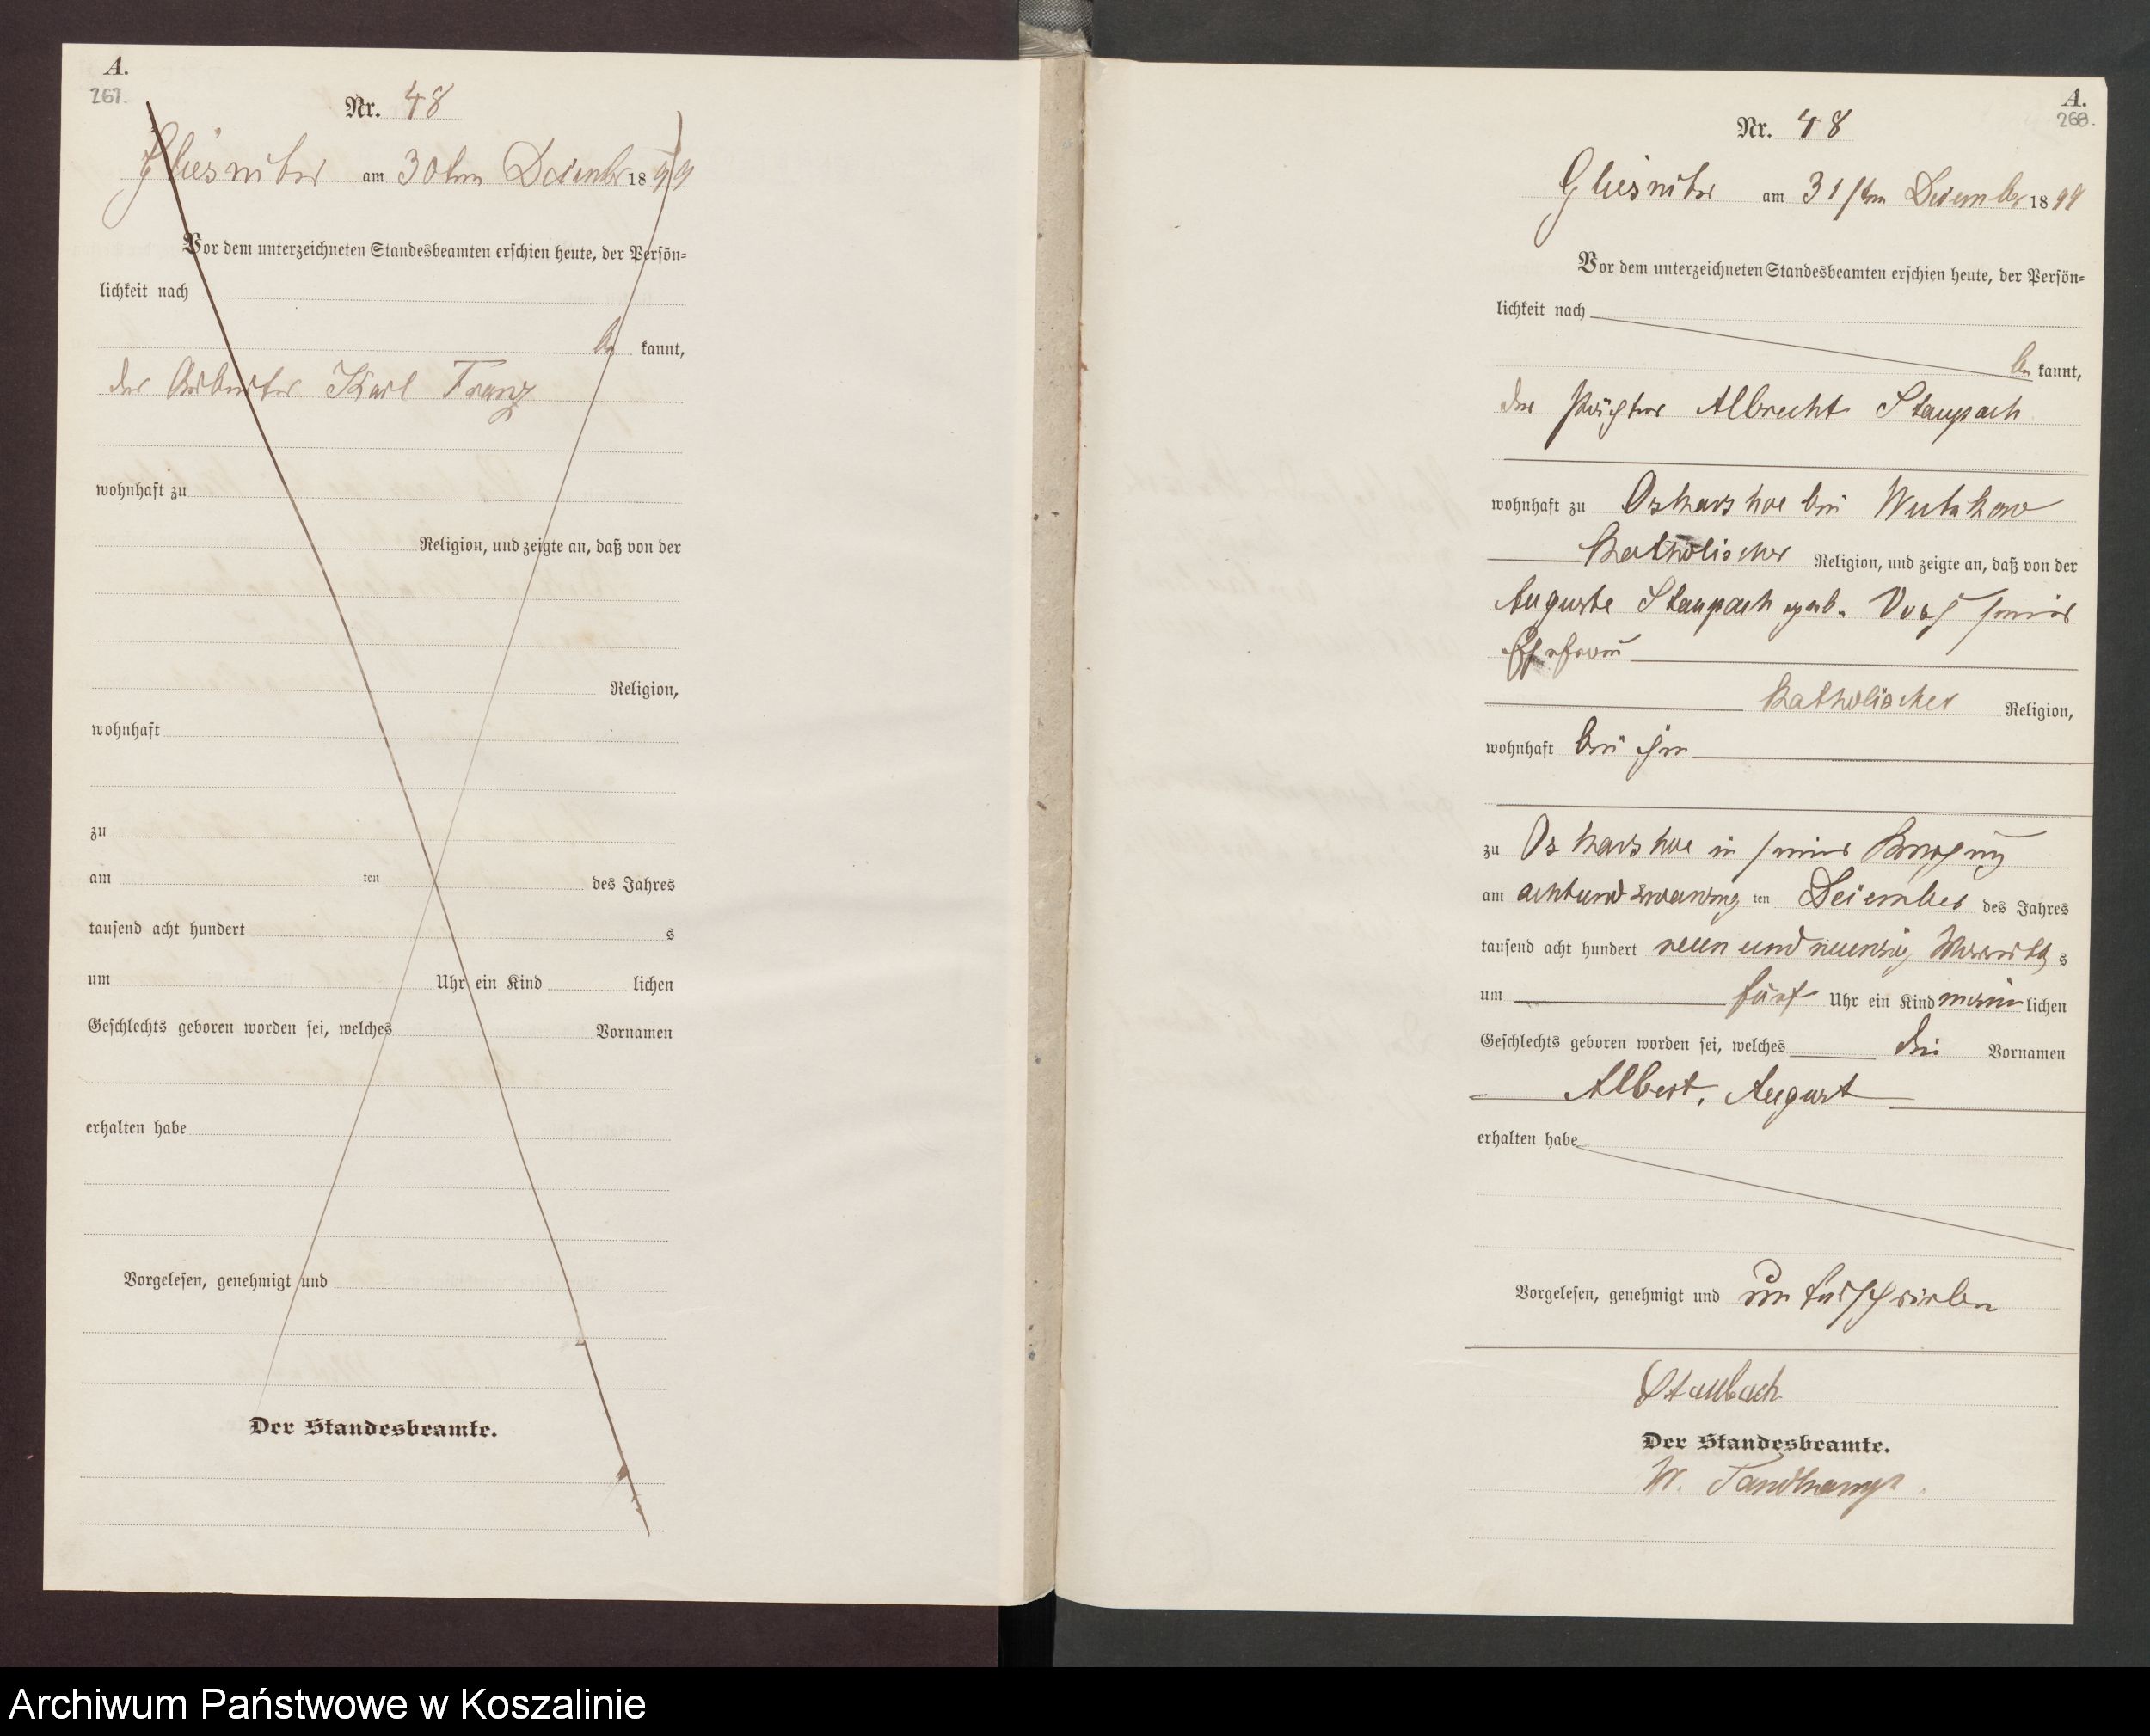 A.
267.
Nr. 48
Gliesnitz am 30ten Dezember 1899
Vor dem unterzeichneten Standesbeamten erschien heute, der Persön=
lichkeit nach
be kannt,
der Arbeiter Karl Franz
wohnhaft zu
Religion, und zeigte an, daß von der
Religion,
wohnhaft
zu
am ten des Jahres
tausend acht hundert s
um Uhr ein Kind lichen
Geschlechts geboren worden sei, welches Vornamen
erhalten habe
Vorgelesen, genehmigt und
Der Standesbeamte.
A.
268.
Nr. 48
Gliesnitz am 31sten Dezember 1899
Vor dem unterzeichneten Standesbeamten erschien heute, der Persön=
lichkeit nach
be kannt,
der Pächter Albrecht Staupach
wohnhaft zu Oskarshoe bei Wutzkow
katholischer Religion, und zeigte an, daß von der
Auguste Staupach geb. Voss seiner
Ehefrau
katholischer Religion,
wohnhaft bei ihm
zu Oskarshoe in seiner
am achtundzwanzig ten Dezember des Jahres
tausend acht hundert neun und neunzig s
um fünf Uhr ein Kind männ lichen
Geschlechts geboren worden sei, welches die Vornamen
Albert, August
erhalten habe
Vorgelesen, genehmigt und unterschrieben
Staubach
Der Standesbeamte.
W.
Archiwum Państwowe w Koszalinie